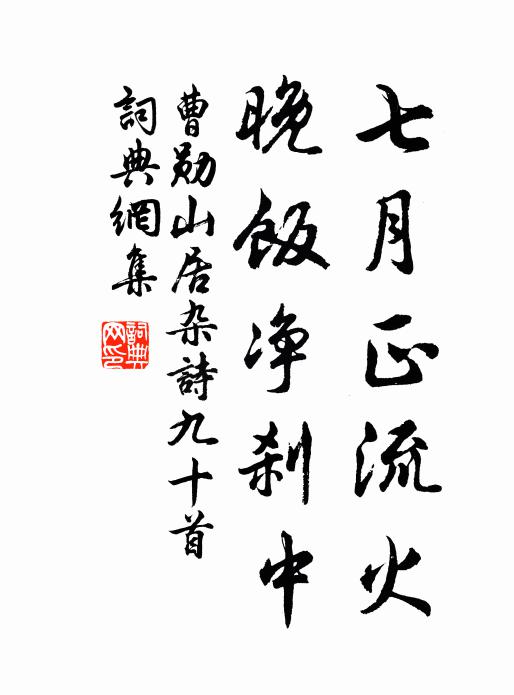 七月正流火
晚飯净刹中
曹勋山居杂詩九十首
詞典網集
詞典網印